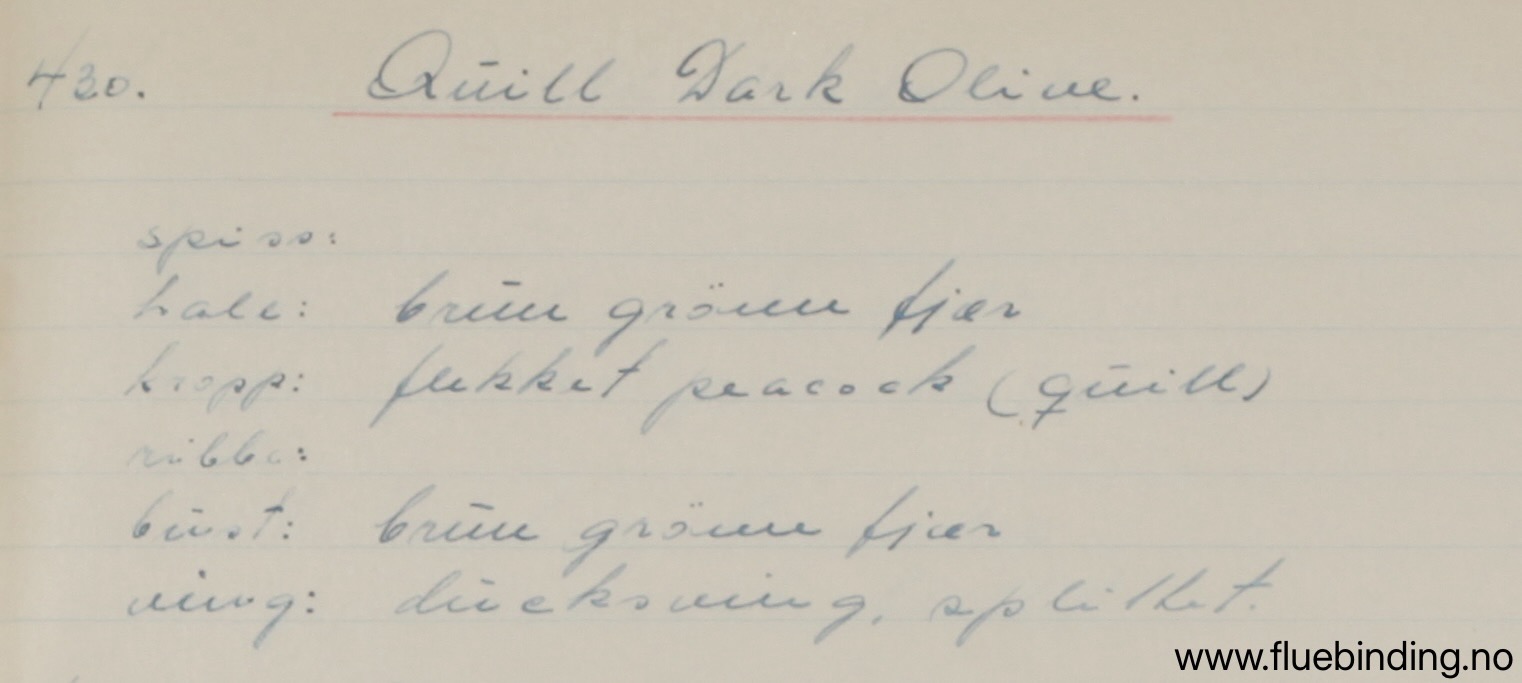 430. Quill Dark Olive.
spiss:
hale: brun grönn fjær
kropp: flekket peacock (quill)
ribbe:
bust: brun grönn fjær
ving: ducksving, splittet.
www.fluebinding.no